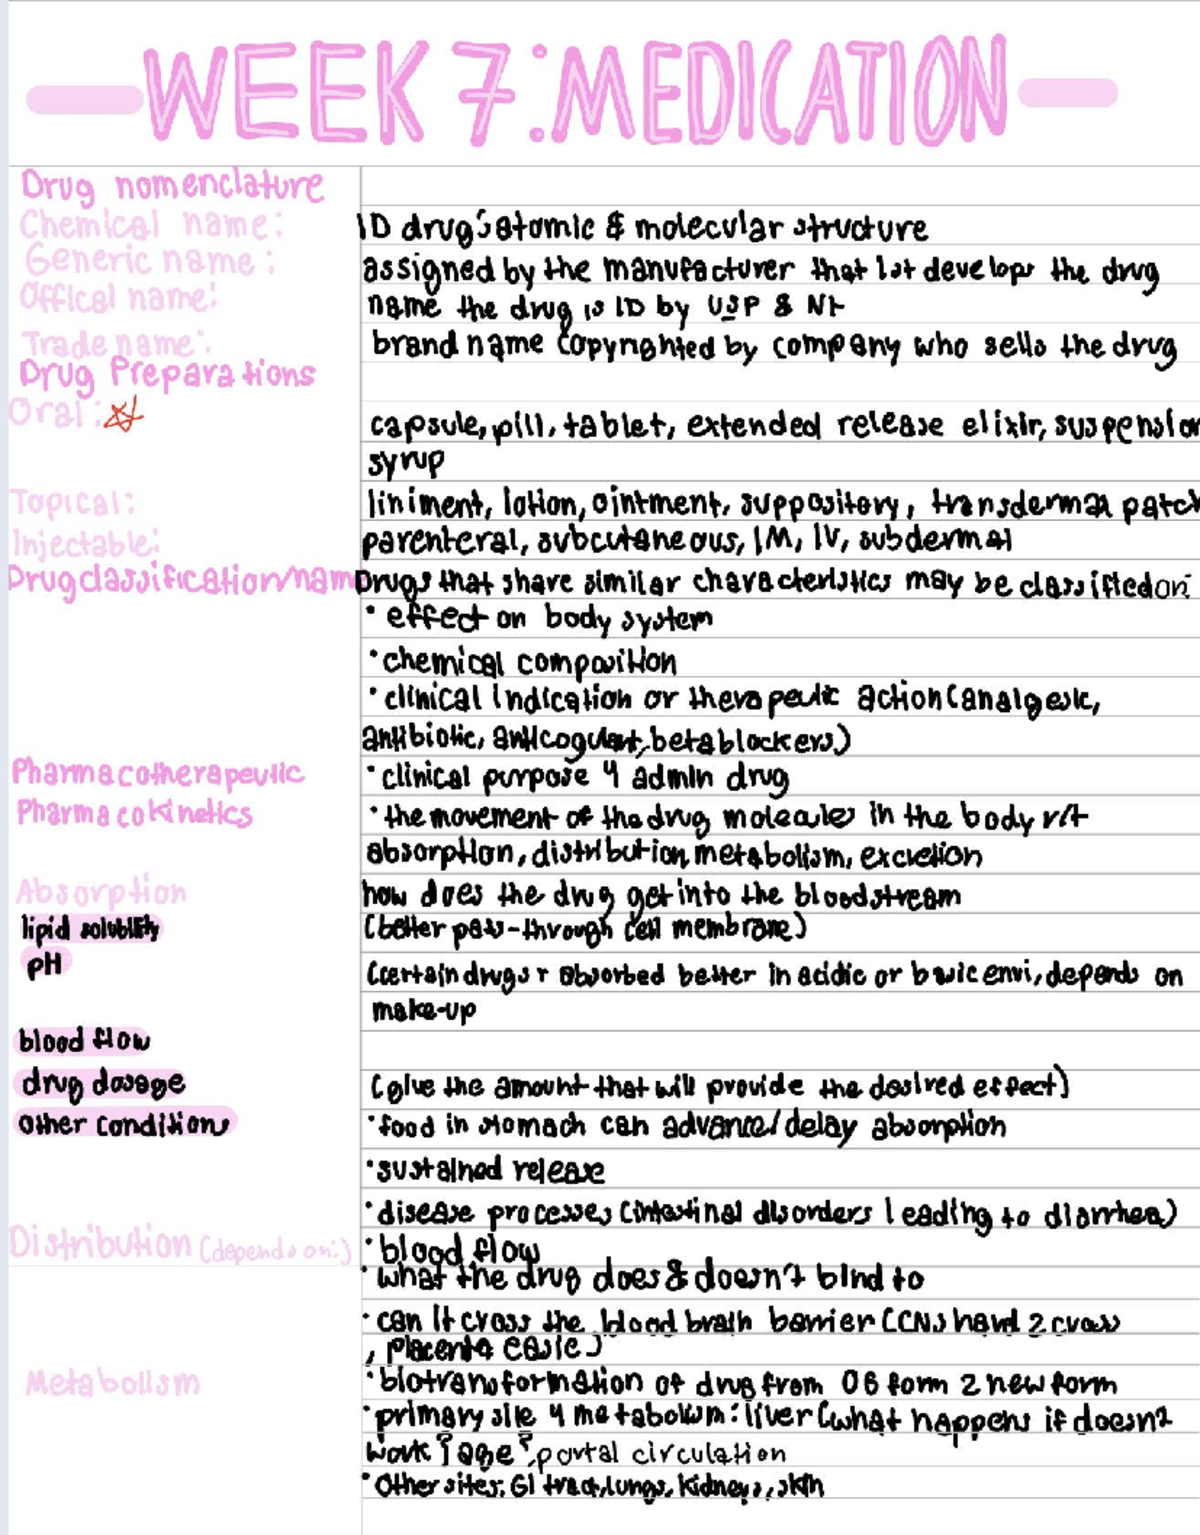 WEEK 7: MEDICATION
Drug nomenclature
Chemical name: ID drug's atomic & molecular structure
Generic name: assigned by the manufacturer that 1st develops the drug
Offical name: name the drug is ID by USP & NF
Trade name: brand name copyrighted by company who sells the drug
Drug Preparations
Oral:
capsule, pill, tablet, extended release elixir, suspension
syrup
Topical: liniment, lotion, ointment, suppository, transdermal patch
Injectable: parenteral, subcutaneous, IM, IV, subdermal
Drug classification/name Drugs that share similar characteristics may be classified on:
• effect on body system
• chemical composition
• clinical indication or therapeutic action (analgesic,
antibiotic, anticogulant, betablockers)
Pharmacotherapeutic • clinical purpose 4 admin drug
Pharmacokinetics • the movement of the drug molecules in the body r/t
absorption, distribution, metabolism, excretion
Absorption how does the drug get into the bloodstream
lipid solubility (better pass-through cell membrane)
pH (certain drugs r absorbed better in acidic or basic envi, depends on
make-up
blood flow
drug dosage (give the amount that will provide the desired effect)
other conditions • food in stomach can advance/delay absorption
• sustained release
• disease processes (intestinal disorders leading to diarrhea)
Distribution (depends on:) • blood flow
• what the drug does & doesn't bind to
• can it cross the blood brain barrier (CNS hard 2 cross
, placenta easie)
Metabolism • biotransformation of drug from OG form 2 new form
• primary site 4 metabolism: liver (what happens if doesn't
work? age?, portal circulation
• Other sites: GI tract, lungs, kidneys, skin